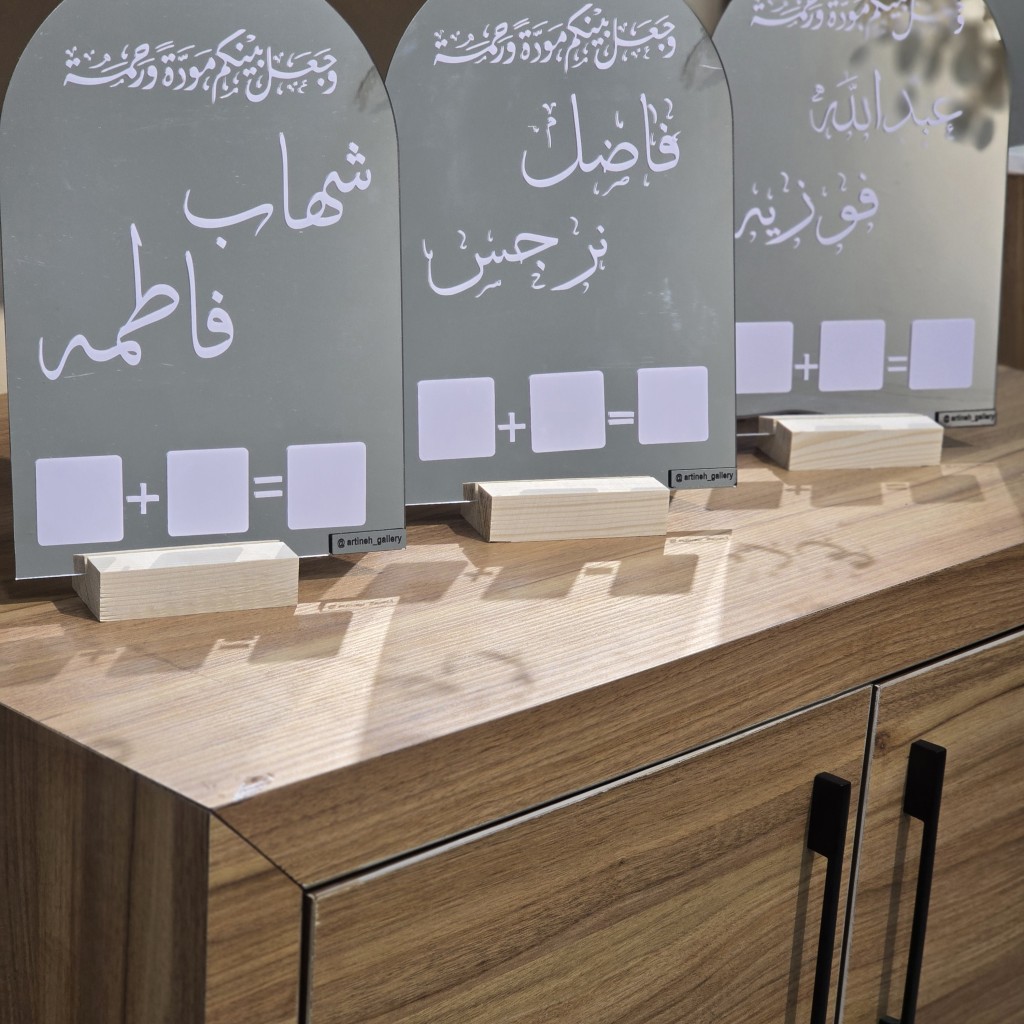 وَجَعَلَ بَيْنَكُم مَوَدَّةً وَرَحْمَةً
شهاب
فاطمه
+ =
@artineh_gallery
وَجَعَلَ بَيْنَكُم مَوَدَّةً وَرَحْمَةً
فاضل
نرجس
+ =
@artineh_gallery
وَجَعَلَ بَيْنَكُم مَوَدَّةً وَرَحْمَةً
عبدالله
فوزیه
+ =
@artineh_gallery